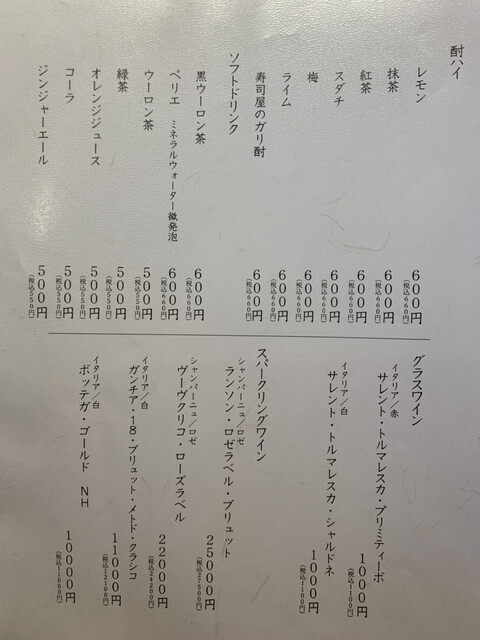 酎ハイ
レモン 600円(税込660円)
抹茶 600円(税込660円)
紅茶 600円(税込660円)
スダチ 600円(税込660円)
梅 600円(税込660円)
ライム 600円(税込660円)
寿司屋のガリ酎 600円(税込660円)
ソフトドリンク
黒ウーロン茶 600円(税込660円)
ペリエ ミネラルウォーター微発泡 600円(税込660円)
ウーロン茶 500円(税込550円)
緑茶 500円(税込550円)
オレンジジュース 500円(税込550円)
コーラ 500円(税込550円)
ジンジャーエール 500円(税込550円)
グラスワイン
イタリア/赤
サレント・トルマレスカ・プリミティーボ 1000円(税込1100円)
イタリア/白
サレント・トルマレスカ・シャルドネ 1000円(税込1100円)
スパークリングワイン
シャンパーニュ/ロゼ
ランソン・ロゼラベル・ブリュット 25000円(税込27500円)
シャンパーニュ/ロゼ
ヴーヴクリコ・ローズラベル 22000円(税込24200円)
イタリア/白
ガンチア・18・ブリュット・メトド・クラシコ 11000円(税込12100円)
イタリア/白
ボッテガ・ゴールド NH 10000円(税込11000円)